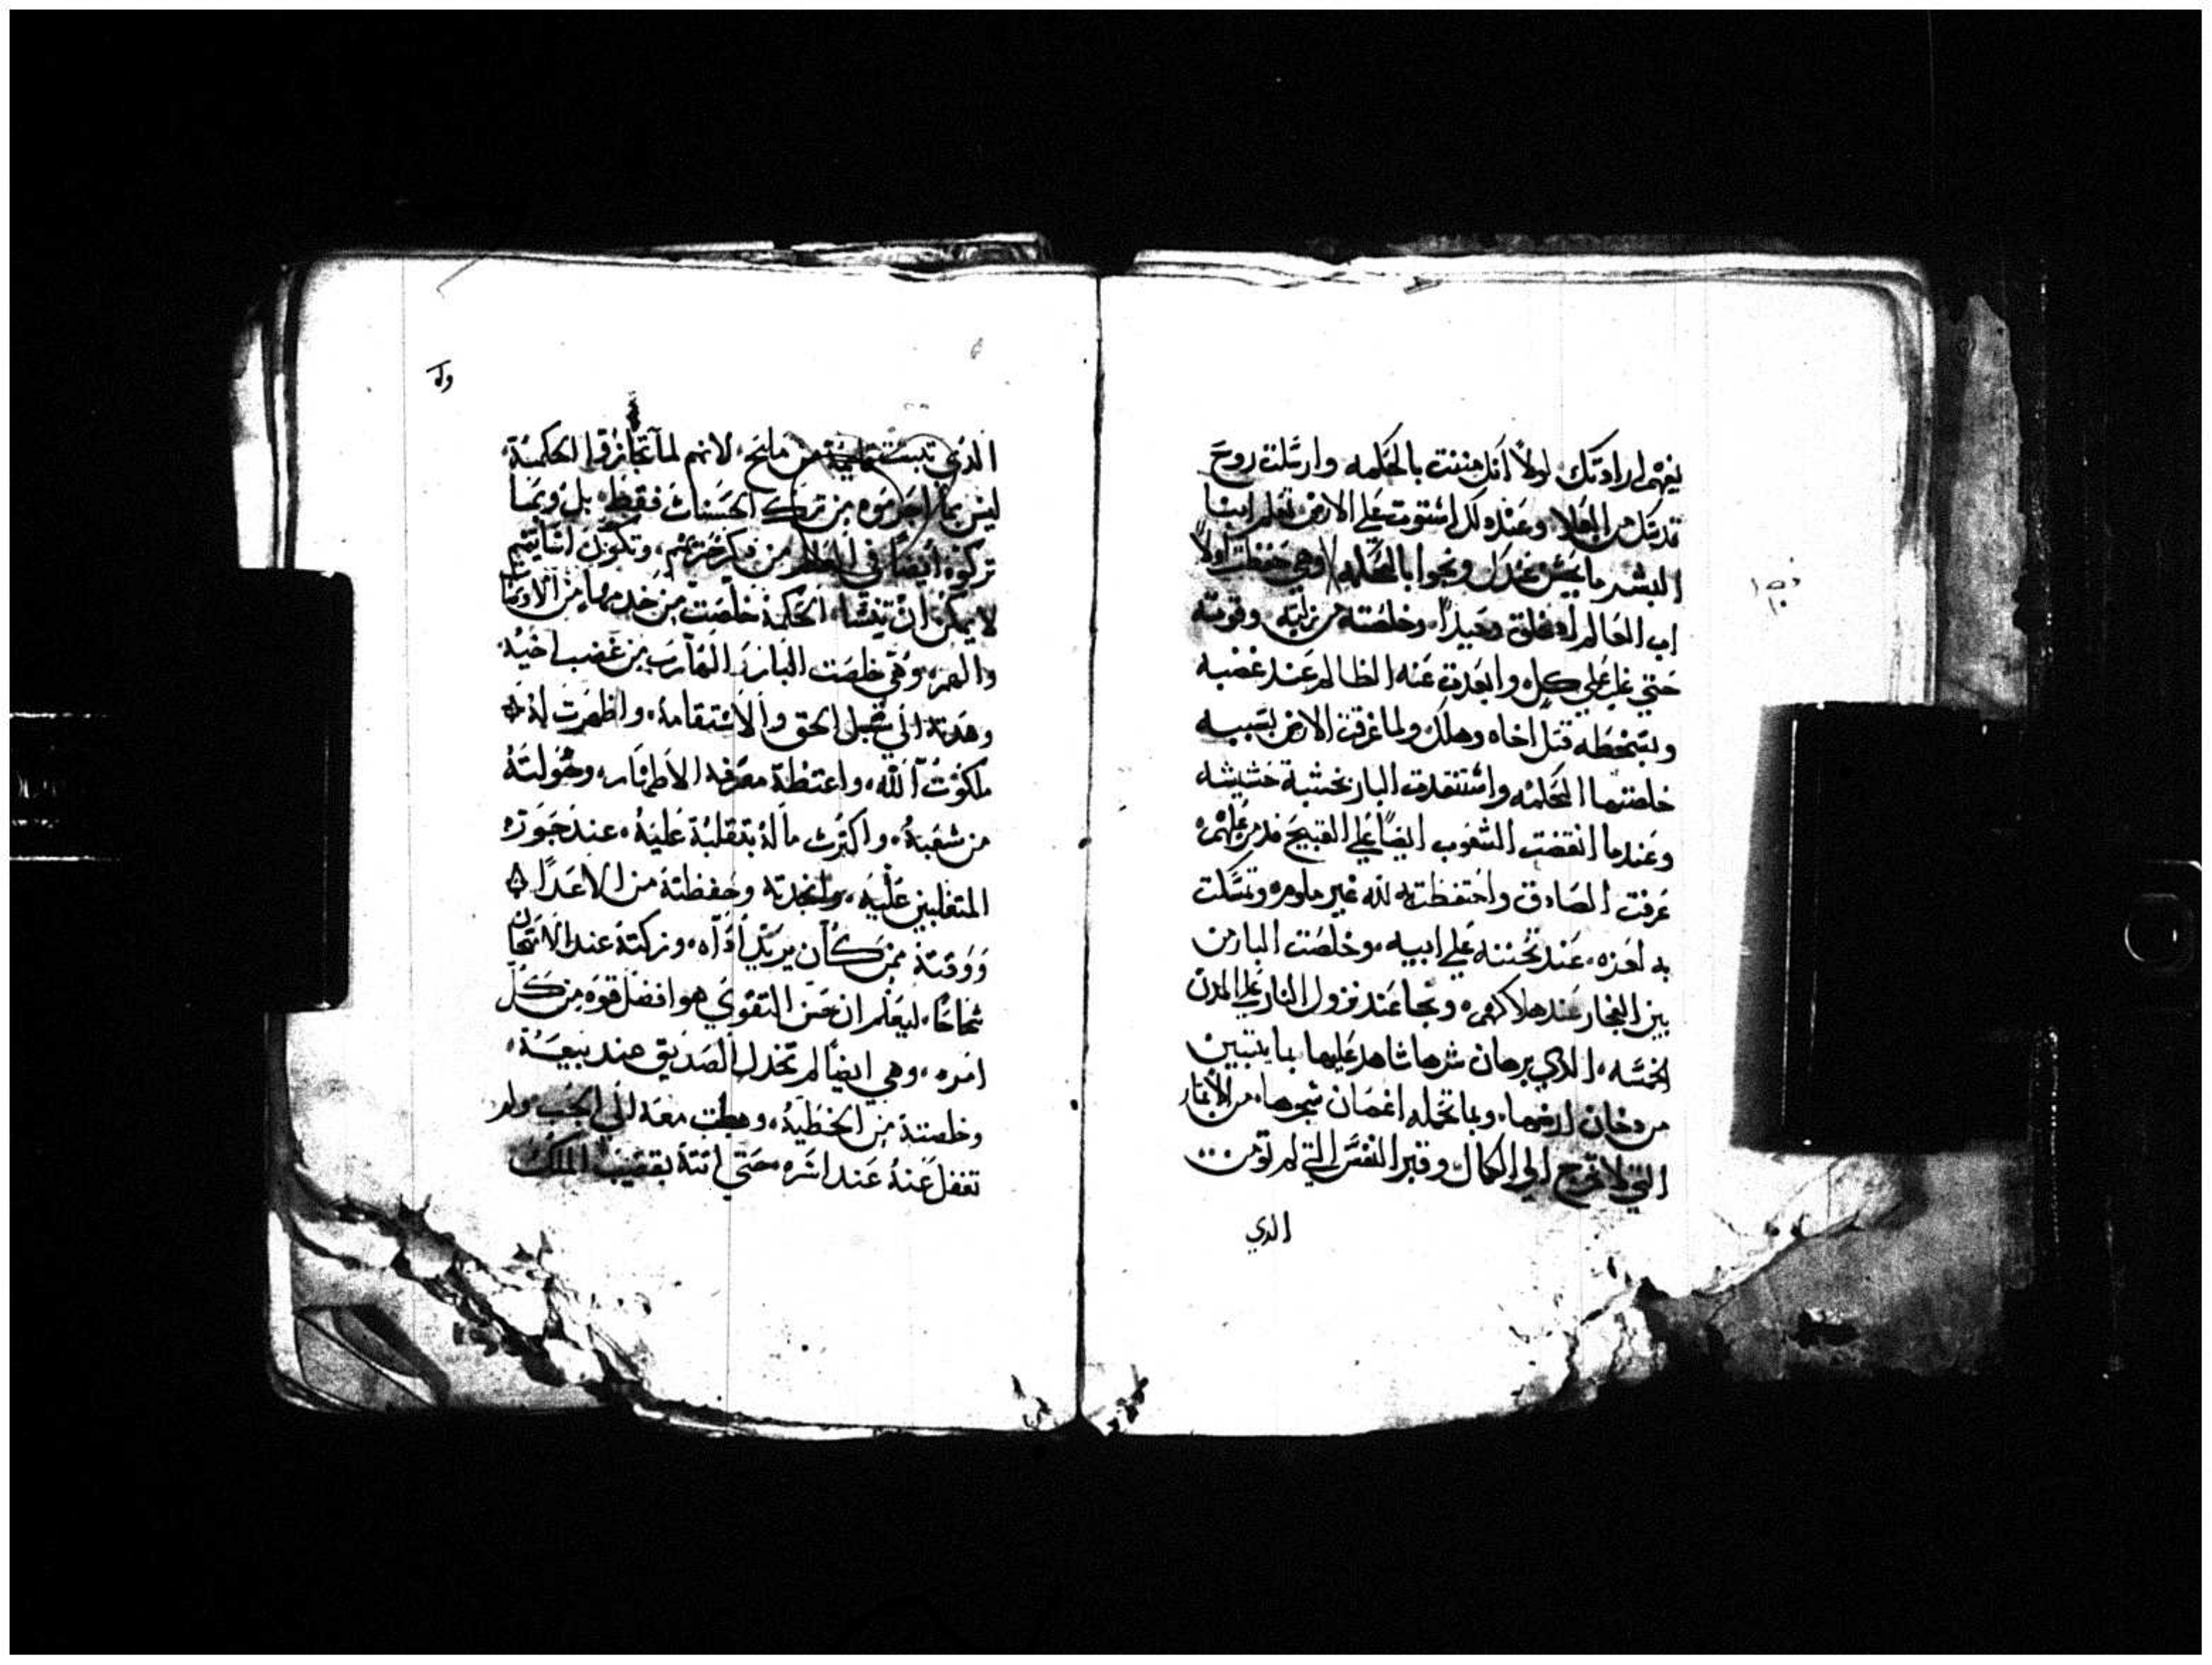 يفهم ارادتك لولا انك مننت بالحكمه وارسلت روح
قدسك من العلا وعند دلك استوت علي الارض تعلم ابنا
البشر ما يحسن عندك ونجوا بالحكمه وهي حفظت اولاً
اب العالم اد خلق وحيداً وخلصته من زلته وقوته
حتي غلي كل وابعدت عنه الظالم عند غضبه
وبسخطه قتل اخاه وهلك ولما غرقت الارض بسببه
خلصتها الحكمه واستنقدت البار بخشبة خشيشه
وعندما اتفقت الشعوب ايضاً علي القبيح
عرفت الصادق واحتفظت به لله غير ملومه وتمسكت
به عند تحننه علي ابيه وخلصت البار من
بين الفجار عند هلاكهم ونجا عند نزول النار علي المدن
الخمسه الدي برهان شرها شاهد عليها بما يتبين
من دخان ارضها وبما تحمله اغصان شجرها من الأثمار
التي لا تخرج الي الكمال وقبر النفس التي لم تومن
الدي
فص
١٠
الدي من ملح لانهم لما تجازوا الحكمة
ليس بما احرموه من ترك الحسنات فقط بل وبما
تركوه ايضاً في العالم من دكر وتكون اسايتهم
لا يمكن ان تنسا الحكمة خلصت من خدمها من الاوجاع
والهم وهي خلصت البار الهارب من غضب اخيه
وهدته الي سبل الحق والاستقامة واظهرت له
ملكوت الله واعتظة معرفه الاطهار وهولته
من شعبة واكترت ماله بتقلبة عليه عند جوره
المتغلبين عليه وانجدته وحفظتة من الاعدا
ووقتة ممن كان يريد اداه وزكته عند الامتحان
شجاعا ليعلم ان حسن التقوي هو افضل قوه من كل
امره وهي ايضاً لم تخدل الصديق عند بيعة
وخلصتة من الخطية وهبطت معه الي الجب ولم
تغفل عنة عند اسره حتي اتتة بقضيب الملك